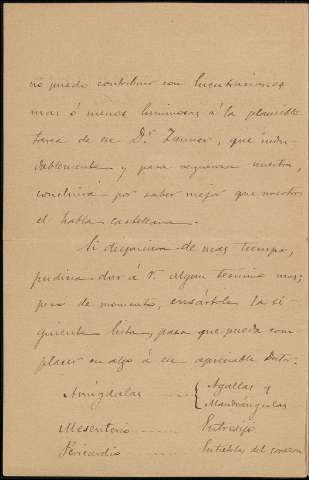 no puedo contribuir con lucubraciones
mas ó menos luminosas á la plausible
tarea de ese Dr. Zauner, que indu-
dablemente y para vergüenza nuestra,
concluirá por saber mejor que nosotros
el habla castellana.
Si dispusiera de mas tiempo,
pudiera dar á V. algun termino mas;
pero de momento, ensártole la si-
guiente lista, para que pueda com-
placer en algo á ese apreciable Doctor:
Amígdalas ...... { Agallas y
Mandránguelas
Mesenterio ........ Entresijo
Pericardio ........ Entretelas del corazon